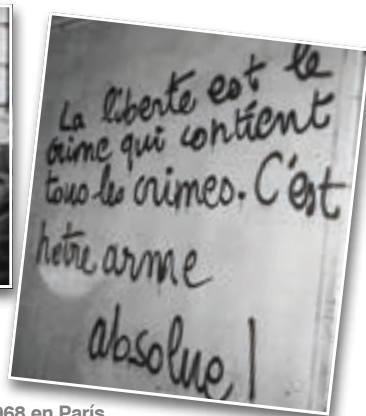 La liberté est le
crime qui contient
tous les crimes. C'est
notre arme
absolue !
968 en París